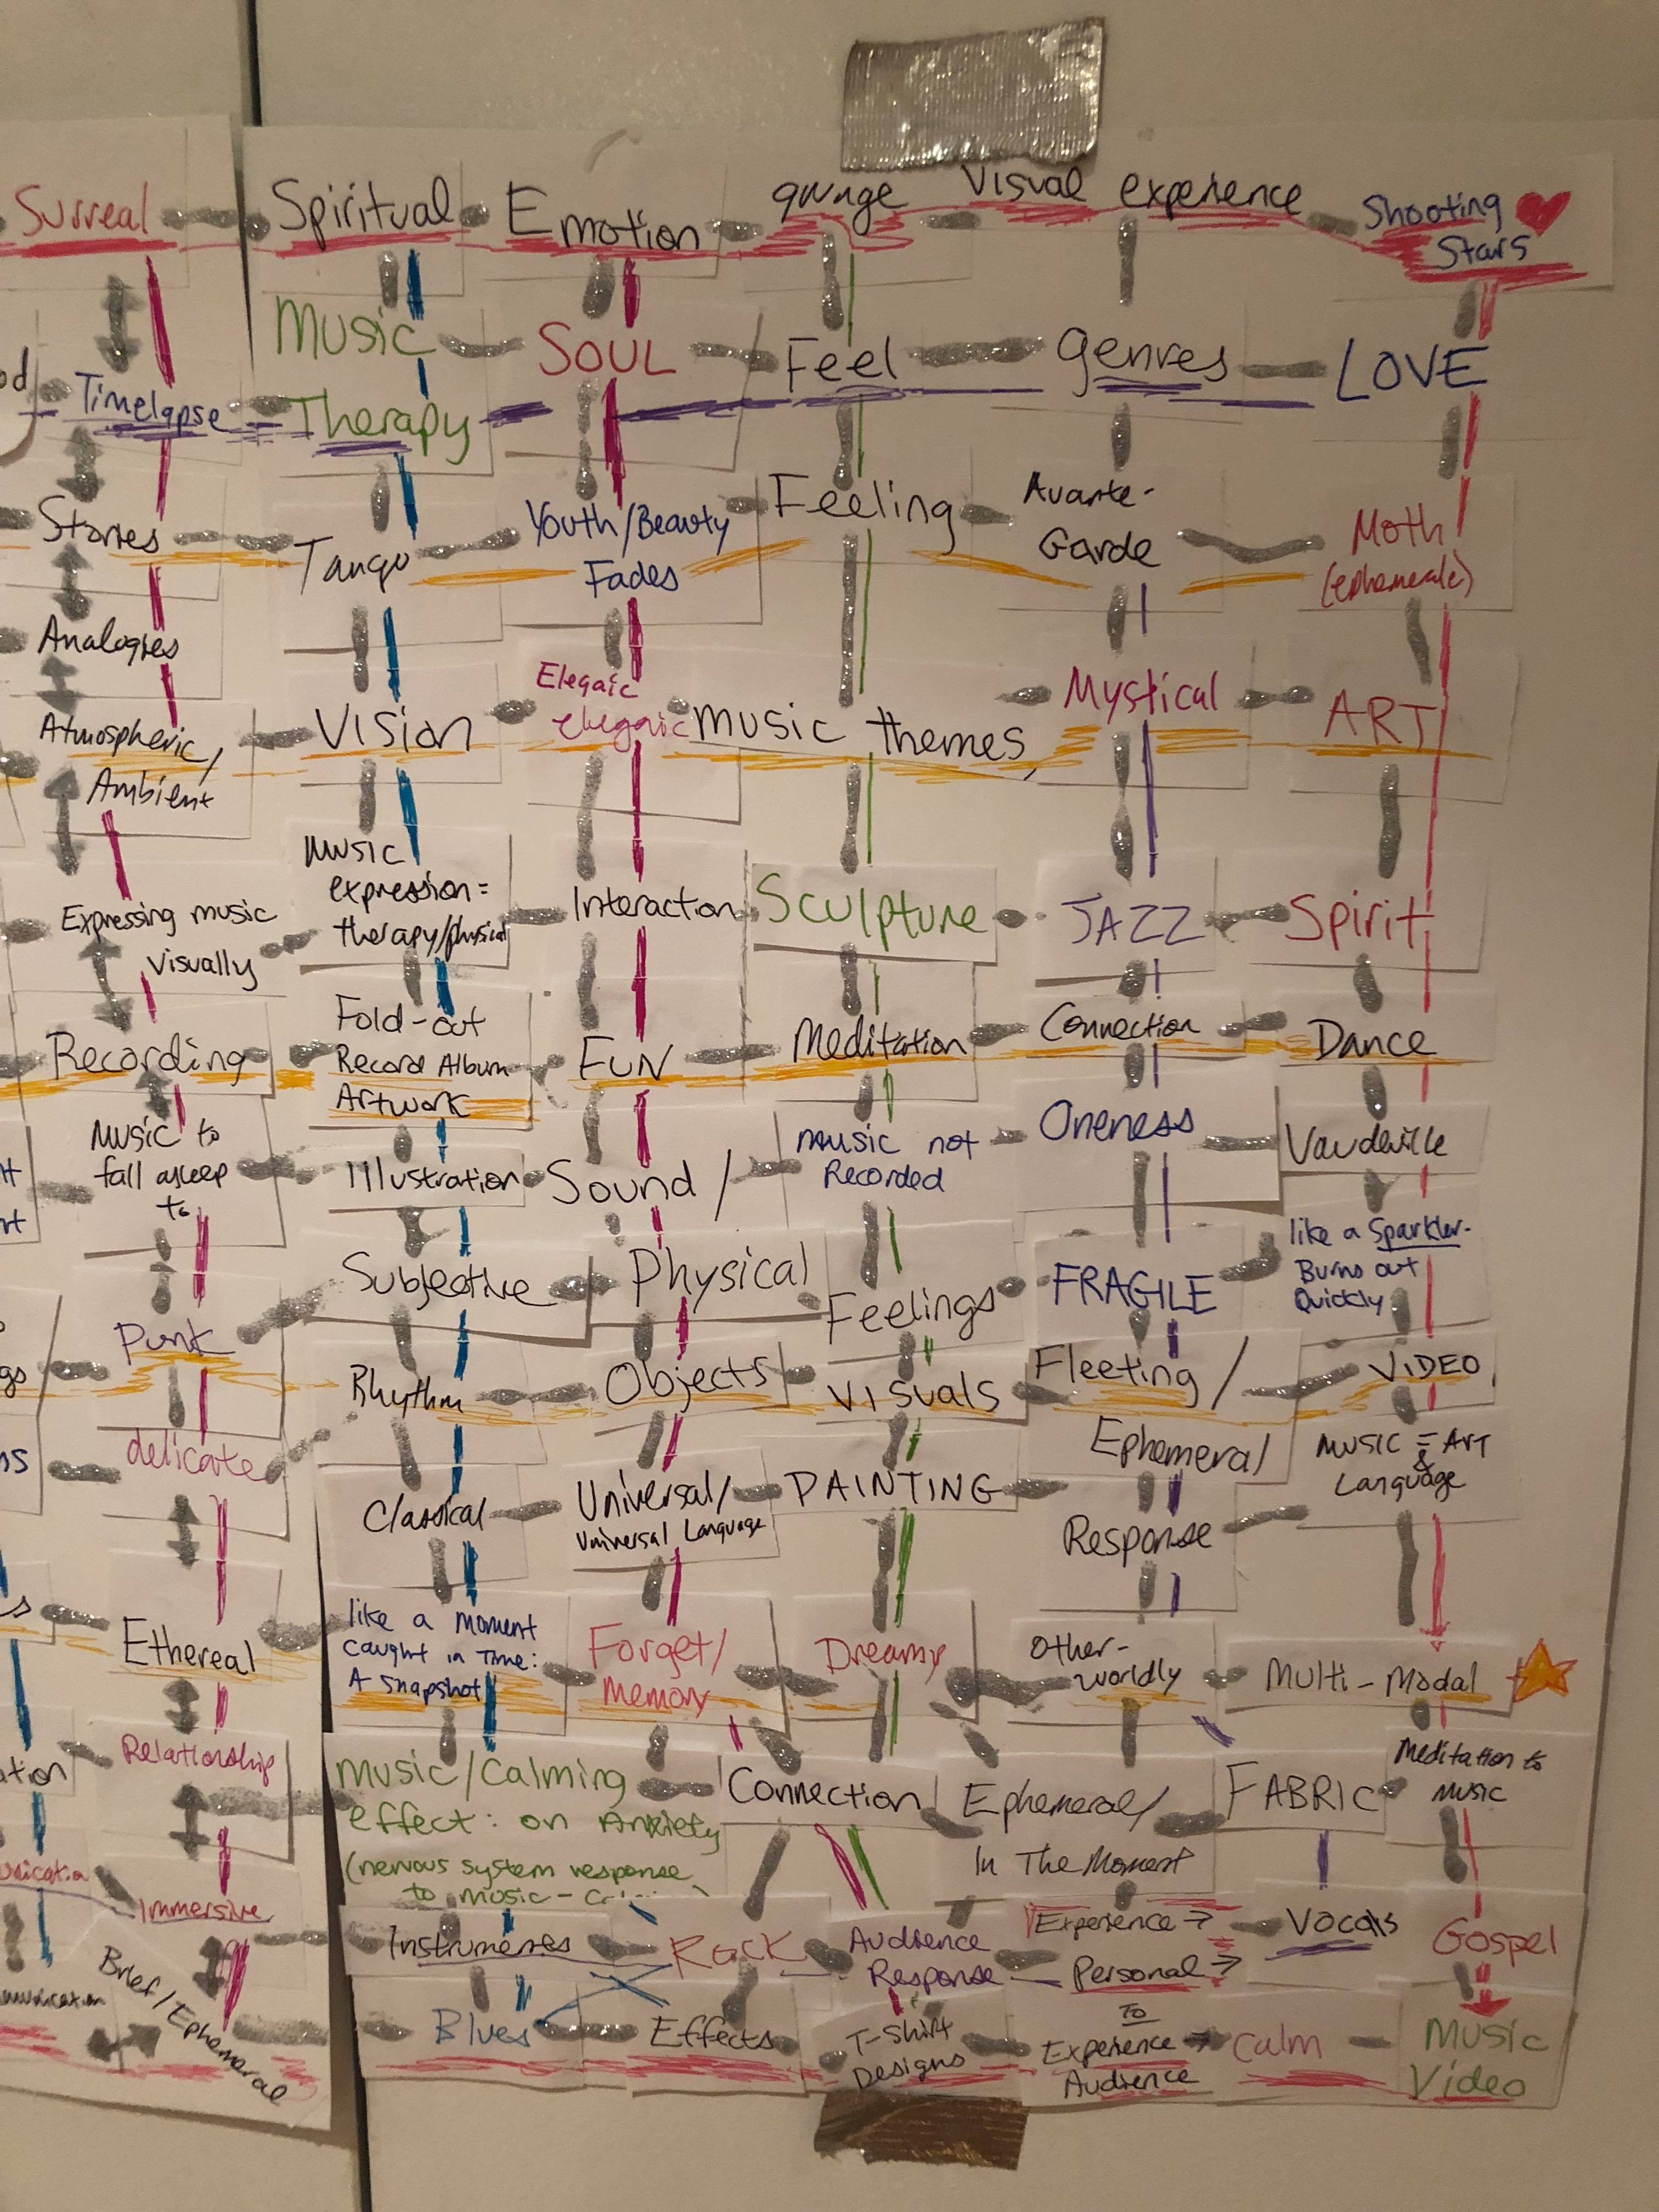 Surreal
Spiritual
Emotion
grunge
Visual experience
Shooting
Stars
Timelapse
Music
Therapy
SOUL
Feel
genres
LOVE
Stories
Tango
Youth/Beauty
Fades
Feeling
Avante-
Garde
Moth
Analogies
Atmospheric/
Ambient
Vision
Elegaic
elegaic
music themes,
Mystical
ART
Expressing music
visually
music
expression =
therapy/physical
Interaction
Sculpture
JAZZ
Spirit
Recording
Fold-out
Record Album
Artwork
FUN
Meditation
Connection
Dance
Music to
fall asleep
to
Illustration
Sound /
music not
Recorded
Oneness
Vaudeville
Punk
Subjective
Physical
Feelings
FRAGILE
like a Sparkler-
Burns out
Quickly
delicate
Rhythm
Objects
Visuals
Fleeting /
Ephemeral
VIDEO
Classical
Universal/
Universal Language
PAINTING
Response
MUSIC = ART
&
Language
Ethereal
like a moment
caught in Time:
A snapshot
Forget/
Memory
Dreamy
Other-
worldly
Multi-Modal
Relationship
music/Calming
effect: on Anxiety
(nervous system response
to music-
Connection
Ephemeral/
In The Moment
FABRIC
Meditation to
music
Immersive
Instruments
Rock
Audience
Response
Experience →
Personal →
To
Experience →
Audience
Vocals
Gospel
Brief/Ephemeral
Blues
Effects
T-Shirt
Designs
Calm
Music
Video